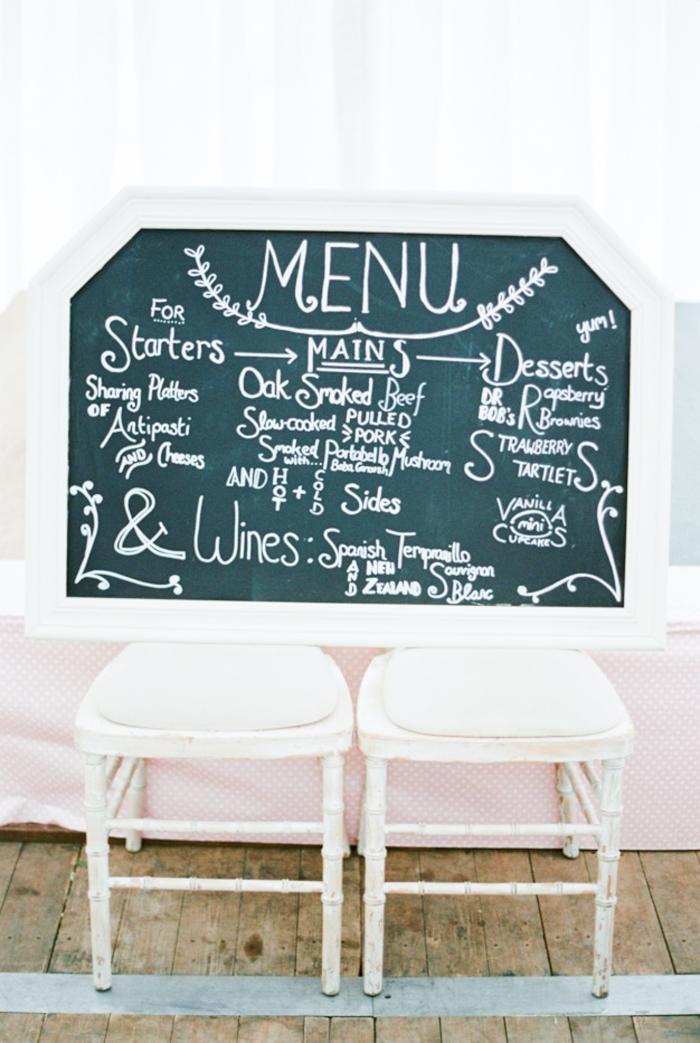 MENU
FOR
Starters
Sharing Platters
OF
Antipasti
AND Cheeses
MAINS
Oak Smoked Beef
Slow-cooked PULLED
PORK
Smoked Portabello Mushroom
with...
AND HOT + COLD Sides
yum!
Desserts
DR BOB's Rapsberry
Brownies
STRAWBERRY
TARTLETS
VANILLA
mini
CUPCAKES
& Wines: Spanish Tempranillo
AND NEW ZEALAND Sauvignon
Blanc